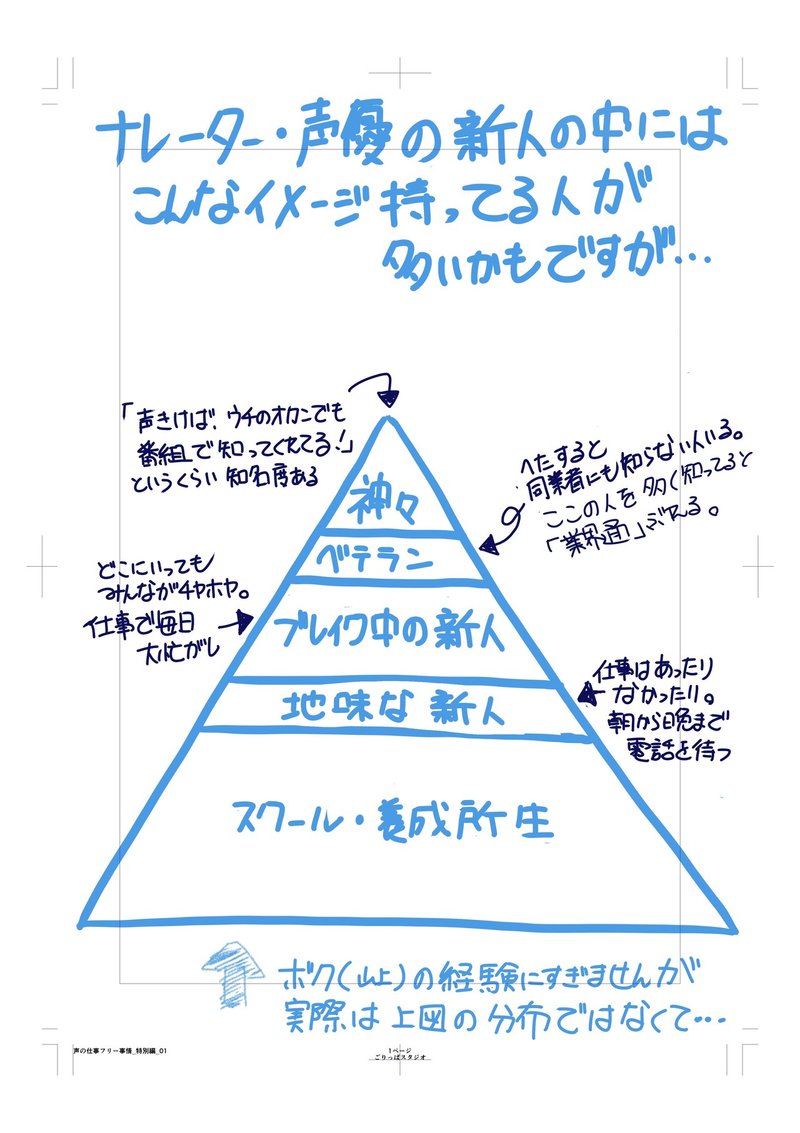 ナレーター・声優の新人の中には
こんなイメージ持ってる人が
多いかもですが…
「声きけば、ウチのオカンでも
番組で知ってくれてる!」
というくらい知名度ある
へたすると
同業者にも知らない人いる。
ここの人を多く知ってると
「業界通」ぶれる。
神々
ベテラン
どこにいっても
みんながチヤホヤ。
仕事で毎日
大忙がし
ブレイク中の新人
仕事はあったり
なかったり。
朝から晩まで
電話を待つ
地味な新人
スクール・養成所生
ボク(山上)の経験にすぎませんが
実際は上図の分布ではなくて…
声の仕事フリー事情_特別編_01
1ページ
ごりっぱスタジオ